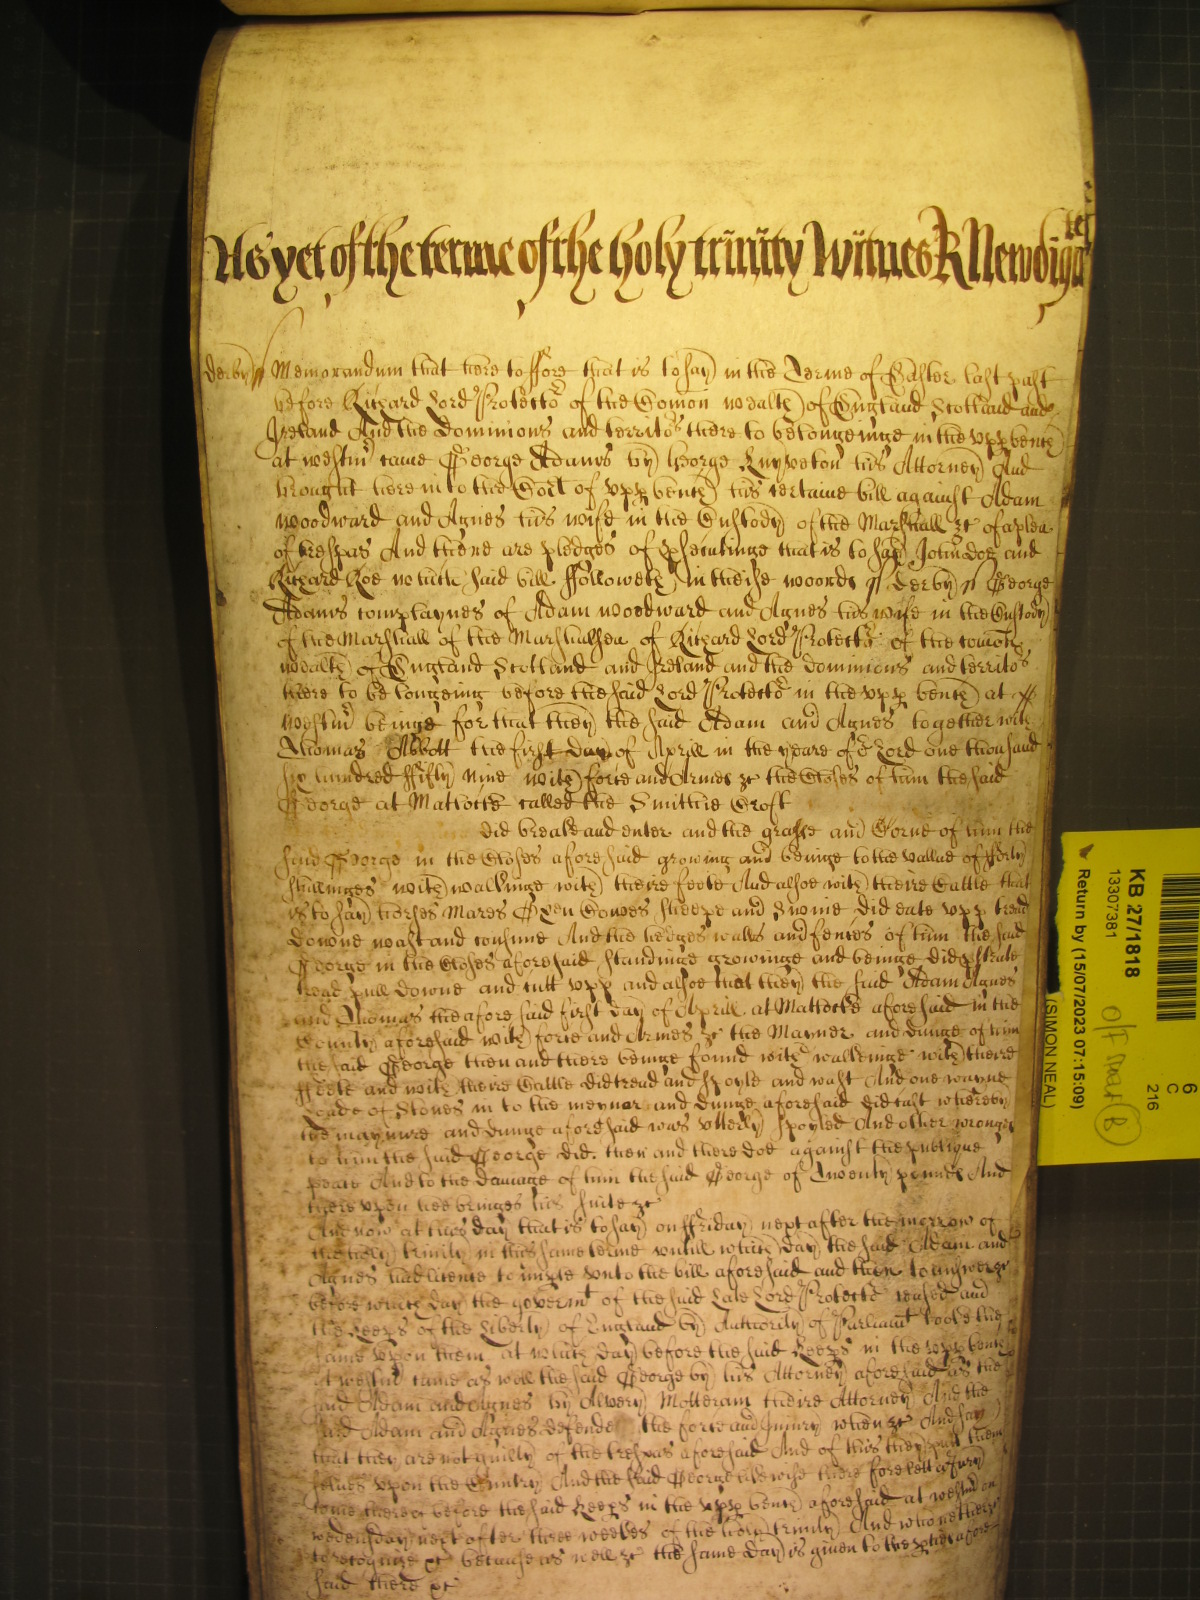 As yet of the terme of the holy trinity Witnes R Newdigate
Derby ss Memorandum that here to ffore that is to say in the Terme of Easter last past
before Richard Lord Protector of the Comon wealth of England Scotland and
Ireland And the dominions and territors there to belongeinge in the upp bench
at westmr came George Adams by George Knyveton his Attorney And
brought here in to the Cort of upp bench his certaine bill against Adam
Woodward and Agnes his wife in the Custody of the Marshall &c of a plea
of trespas And there are pledges of psecutinge that is to say John doe and
Richard Roe which said bill ffolloweth in theise woords ss Derby ss George
Adams complaynes of Adam woodward and Agnes his wife in the Custody
of the Marshall of the Marshalsea of Richard Lord Protector of the comon
wealth of England Scotland and Ireland and the dominions and territors
there to belongeing before the said Lord Protector in the upp bench at
westmr beinge for that they the said Adam and Agnes together with
Thomas Abbott the first day of Aprill in the yeare of or Lord one thousand
six hundred ffifty nine with force and Armes &c the Closes of him the said
George at Matlocke called the Smithie Croft
did breake and enter and the grasse and Corne of him the
said George in the Closes aforesaid growing and beinge to the vallue of fforty
shillinges with walkinge with theire feete And alsoe with theire Cattle that
is to say horses Mares Oxen Cowes sheepe and Swine did eate upp tread
downe wast and consume And the hedges walls and fences of him the said
George in the Closes aforesaid standinge growinge and beinge did pstrate
tread pull downe and cutt upp and alsoe that they the said Adam Agnes
and Thomas the aforesaid first day of Aprill at Matlocke aforesaid in the
County aforesaid with force and Armes &c the Maynor and dunge of him
the said George then and there beinge found with walkeinge with theire
ffeete and with theire Cattle did tread and spoyle and wast And one wayne
Loade of Stones in to the meynor and dunge aforesaid did cast whereby
the maynure and dunge aforesaid was utterly spoyled And other wronges
to him the said George did then and there doe against the publique
peace And to the damage of him the said George of Twenty pounds And
there upon hee bringes his suite &c
And now at this day that is to say on ffriday next after the morrow of
the holy trinity in this same terme untill which day the said Adam and
Agnes had licence to imple unto the bill aforesaid and then to answer &c
before which day the govermt of the said Late Lord Protector ceased and
the Keeps of the Liberty of England by Authority of Parliamt tooke the
same upon them at which day before the said Keeps in the upp bench
at westmr came as well the said George by his Attorney aforesaid as the
said Adam and Agnes by Alvery Motteram theire Attorney And the
said Adam and Agnes defende the force and Injury when &c And say
that they are not guilty of the trespas aforesaid And of this they putt them
selves upon the Cuntry And the said George likewise therefore lett a Jury
come thereof before the said Keeps in the upp bench aforesaid at westmr on
wednesday next after three weekes of the holy trinity And who neither &c
to recognize &c because as well &c the same day is given to the pties afore
said there &c
KB 27/1818
13307381
Return by (15/07/2023 07:15:09)
(SIMON NEAL)
6
C
216